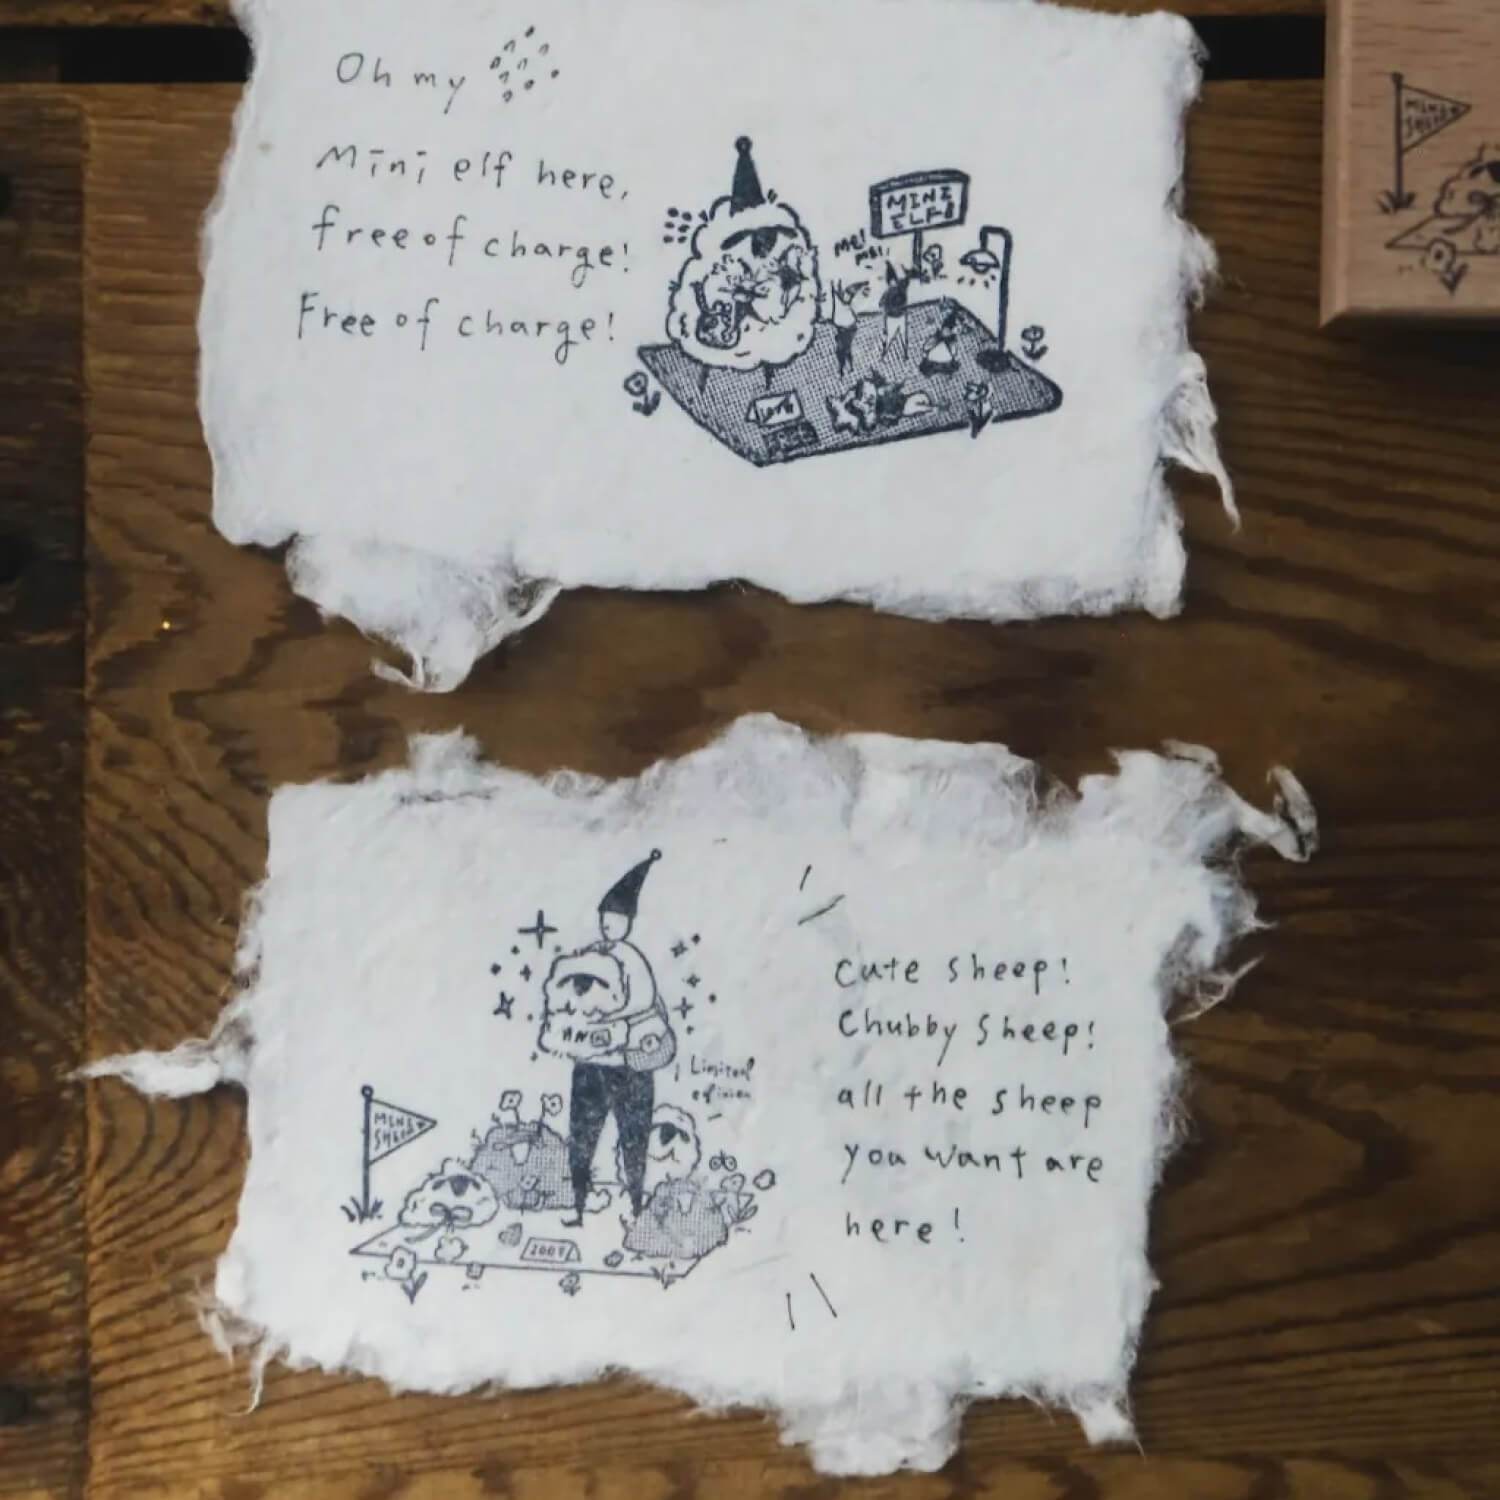 Oh my
Mini elf here,
free of charge!
Free of charge!
MINI
ELF!
ME!
ME!
MINI
SHEEP
Cute sheep!
Chubby sheep!
all the sheep
you want are
here!
Limited
MINI
SHEEP